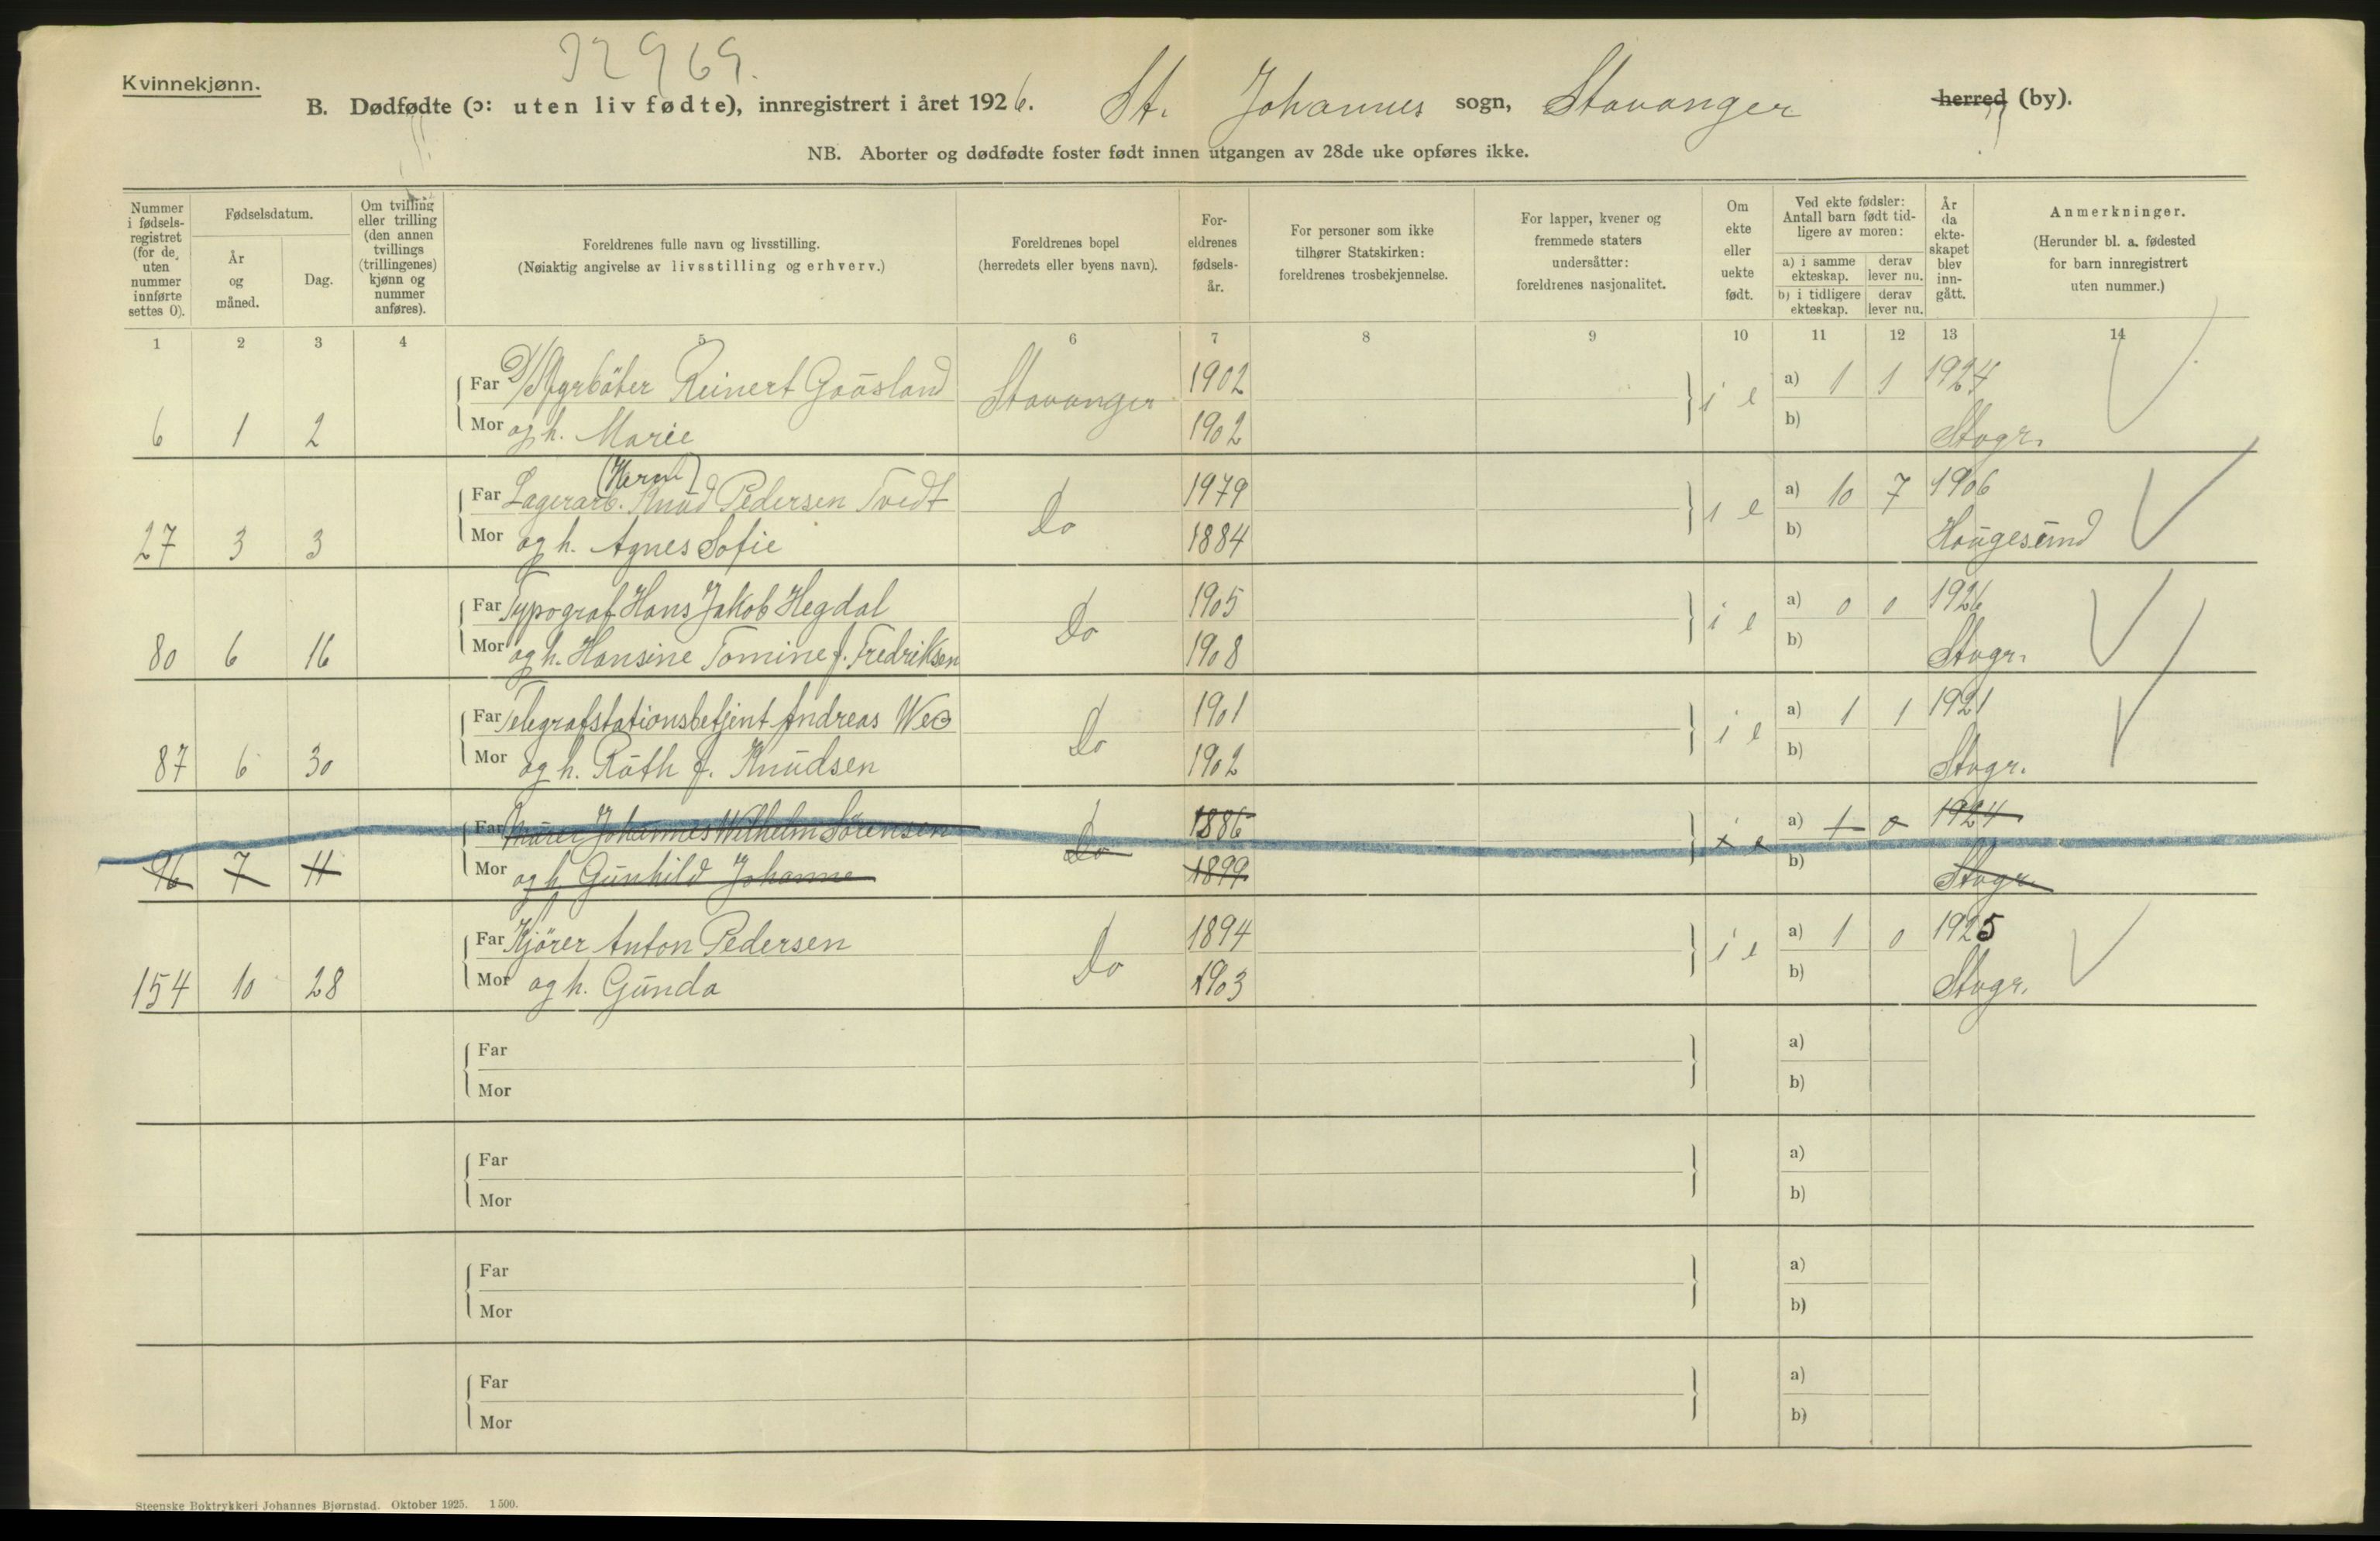 32969.
Kvinnekjønn.
B. Dødfødte (ɔ: uten liv fødte), innregistrert i året 1926. St. Johannes sogn, Stavanger herred (by).
NB. Aborter og dødfødte foster født innen utgangen av 28de uke opføres ikke.
Nummer i fødsels-registret (for de uten nummer innførte settes 0).
Fødselsdatum.
År og måned.
Dag.
Om tvilling eller trilling (den annen tvillings (trillingenes) kjønn og nummer anføres).
Foreldrenes fulle navn og livsstilling.
(Nøiaktig angivelse av livsstilling og erhverv.)
Foreldrenes bopel
(herredets eller byens navn).
For-eldrenes fødsels-år.
For personer som ikke tilhører Statskirken: foreldrenes trosbekjennelse.
For lapper, kvener og fremmede staters undersåtter: foreldrenes nasjonalitet.
Om ekte eller uekte født.
Ved ekte fødsler: Antall barn født tid-ligere av moren:
a) i samme ekteskap.
derav lever nu.
b) i tidligere ekteskap.
derav lever nu.
År da ekte-skapet blev inn-gått.
Anmerkninger.
(Herunder bl. a. fødested for barn innregistrert uten nummer.)
1 2 3 4 5 6 7 8 9 10 11 12 13 14
Far Reinert Gaasland Stavanger 1902 i e a) 1 1 1924
6 1 2 Mor og h. Marie 1902 b) Stvgr.
Far Lagerarb. Knud Pedersen Tvedt Do 1979 i e a) 10 7 1906
27 3 3 Mor og h. Agnes Sofie 1884 b) Haugesund
Far Typograf Hans Jakob Hegdal Do 1905 i e a) 0 0 1926
80 6 16 Mor og h. Hansine Tomine f. Fredriksen 1908 b) Stvgr.
Far Telegrafstationsbetjent Andreas Do 1901 i e a) 1 1 1921
87 6 30 Mor og h. Ruth f. Knudsen 1902 b) Stvgr.
Far Murer Johannes Wilhelm Sörensen Do 1886 i e a) 1 0 1924
96 7 11 Mor og h. Gunhild Johanne 1899 b) Stvgr.
Far Kjörer Anton Pedersen Do 1894 i e a) 1 0 1925
154 10 28 Mor og h. Gunda 1903 b) Stvgr.
Far a)
Mor b)
Far a)
Mor b)
Far a)
Mor b)
Far a)
Mor b)
Steenske Boktrykkeri Johannes Bjørnstad. Oktober 1925. 1500.